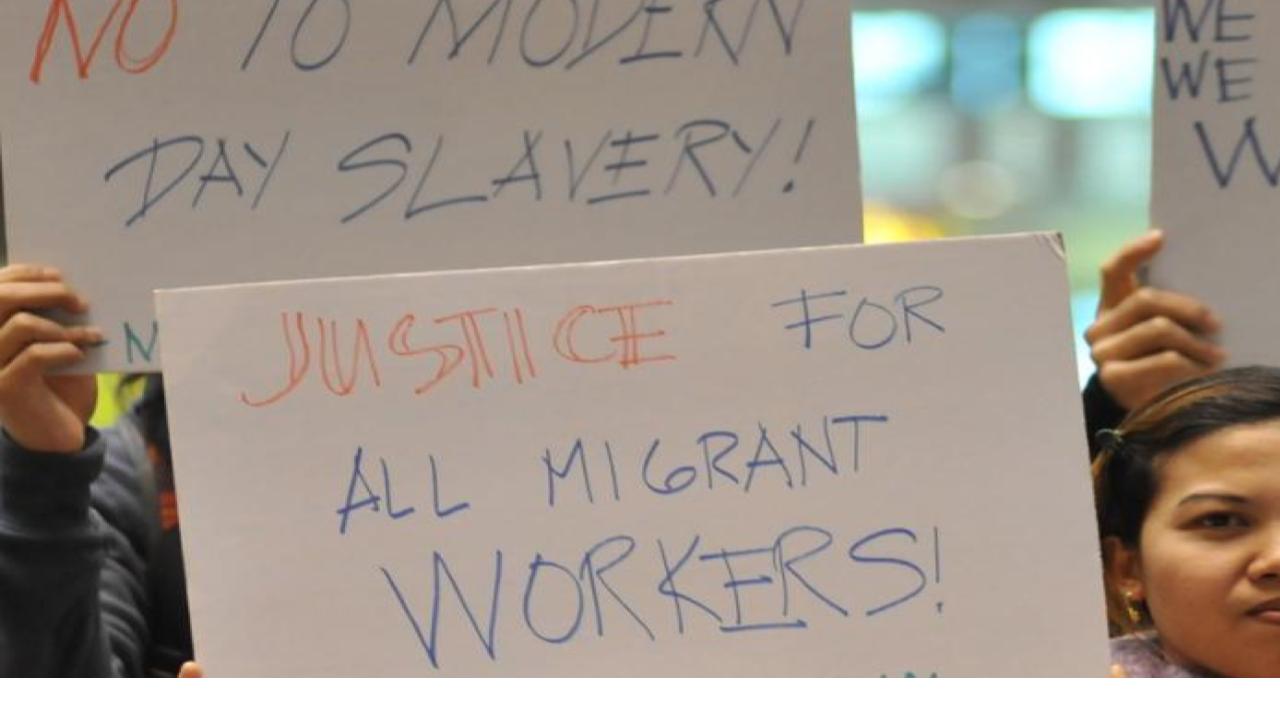 NO TO MODERN
DAY SLAVERY!
N
JUSTICE FOR
ALL MIGRANT
WORKERS!
WE
WE
W